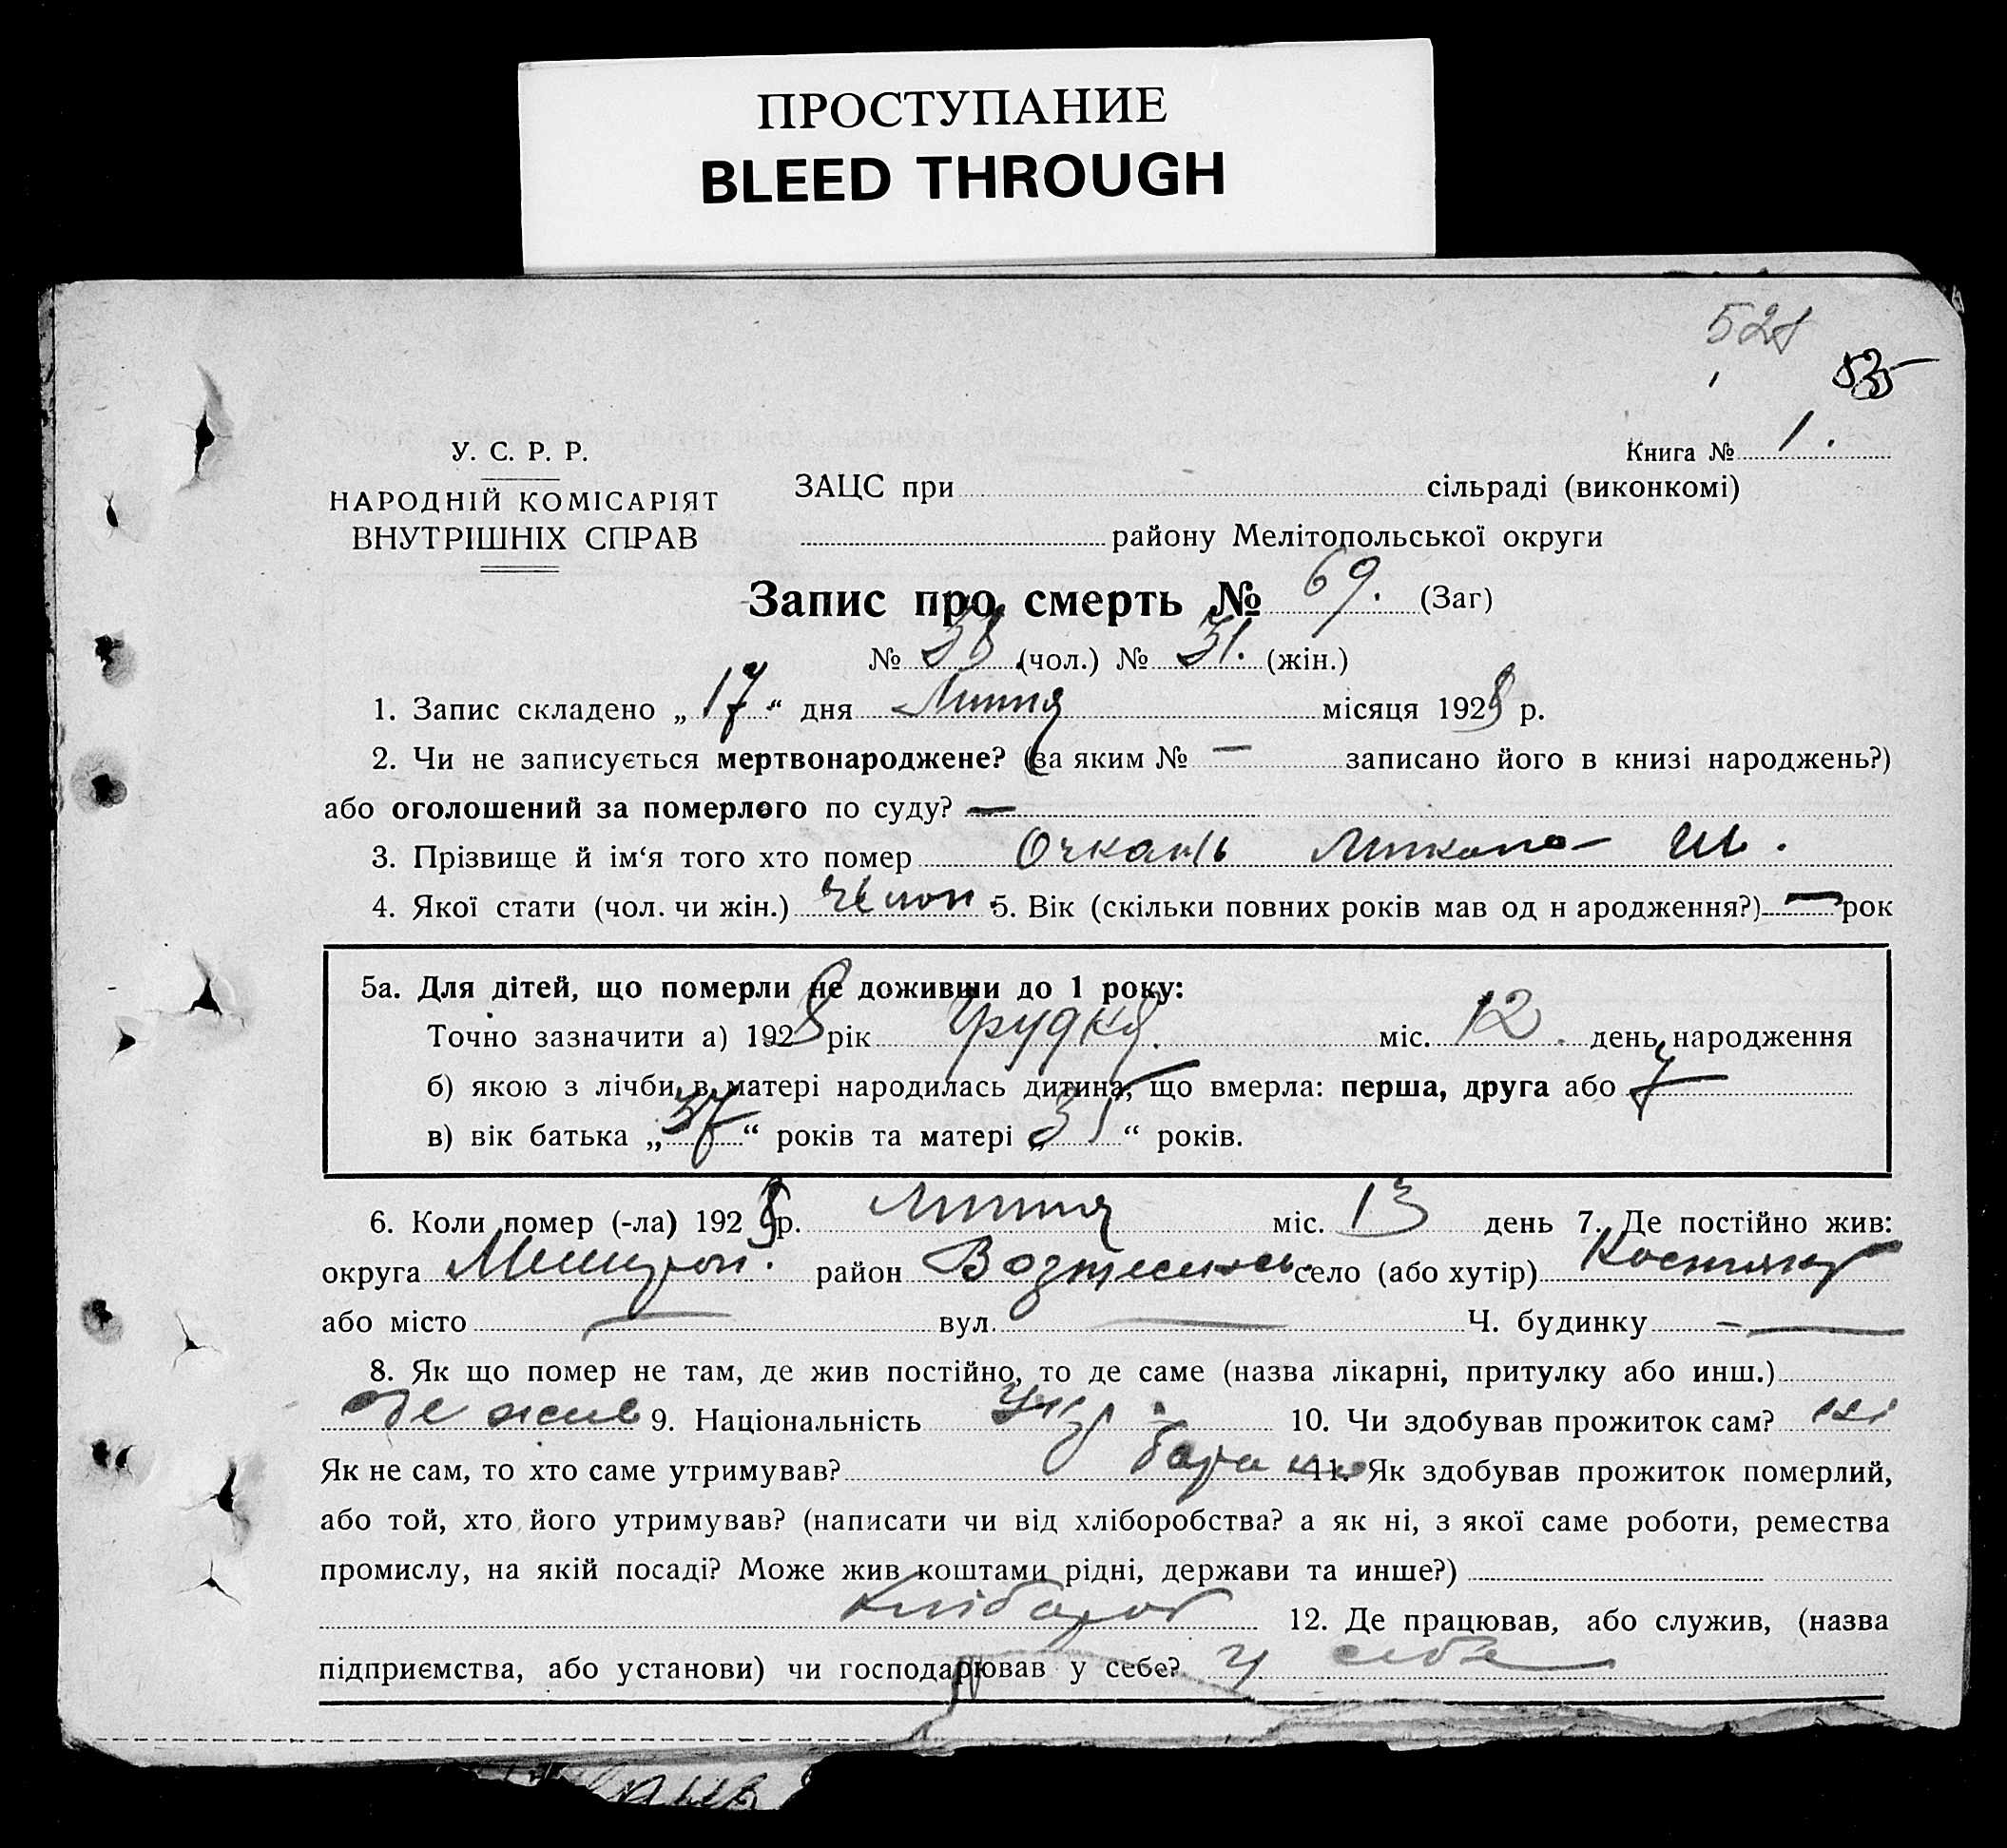 ПРОСТУПАНИЕ
BLEED THROUGH
528
535
У. С. Р. Р.
Книга № 1.
НАРОДНІЙ КОМІСАРІЯТ
ВНУТРІШНІХ СПРАВ
ЗАЦС при сільраді (виконкомі)
району Мелітопольської округи
Запис про смерть № 69. (Заг)
№ 38 (чол.) № 31. (жін.)
1. Запис складено „17“ дня Липня місяця 1928 р.
2. Чи не записується мертвонароджене? (за яким № — записано його в книзі народжень?)
або оголошений за померлого по суду? —
3. Прізвище й ім‘я того хто помер Очкань Микола Ів.
4. Якої стати (чол. чи жін.) чолов 5. Вік (скільки повних років мав од н ародження?) — рок
5а. Для дітей, що померли не доживши до 1 року:
Точно зазначити а) 1928 рік Грудня міс. 12. день народження
б) якою з лічби в матері народилась дитина, що вмерла: перша, друга або 7
в) вік батька „37“ років та матері „31“ років.
6. Коли помер (-ла) 1928 р. Липня міс. 13 день 7. Де постійно жив:
округа Мелітоп. район Вознесенсь. село (або хутір)
або місто — вул. — Ч. будинку —
8. Як що помер не там, де жив постійно, то де саме (назва лікарні, притулку або инш.)
де жив 9. Національність Укр 10. Чи здобував прожиток сам? ні
Як не сам, то хто саме утримував? батько 11. Як здобував прожиток померлий,
або той, хто його утримував? (написати чи від хліборобства? а як ні, з якої саме роботи, ремества
промислу, на якій посаді? Може жив коштами рідні, держави та инше?)
Хлібороб 12. Де працював, або служив, (назва
підприємства, або установи) чи господарював у себе? у себе